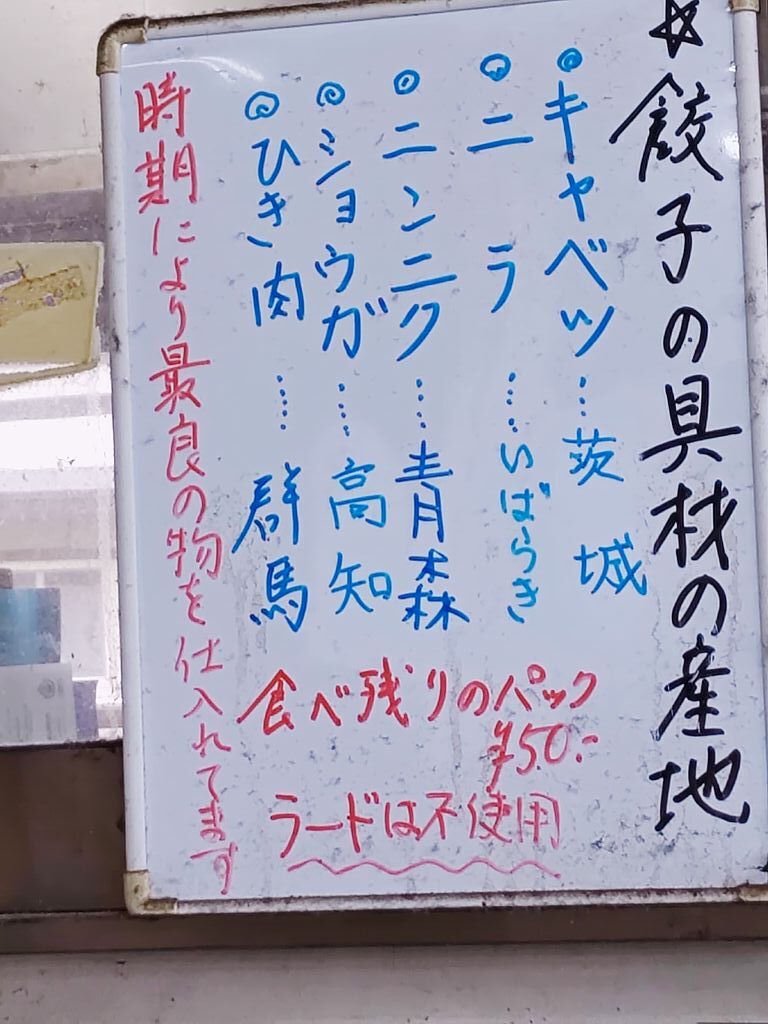 ☆餃子の具材の産地
◎キャベツ…茨城
◎ニラ……いばらき
◎ニンニク……青森
◎ショウガ……高知
◎ひき肉……群馬
時期により最良の物を仕入れてます
食べ残りのパック
¥50.-
ラードは不使用